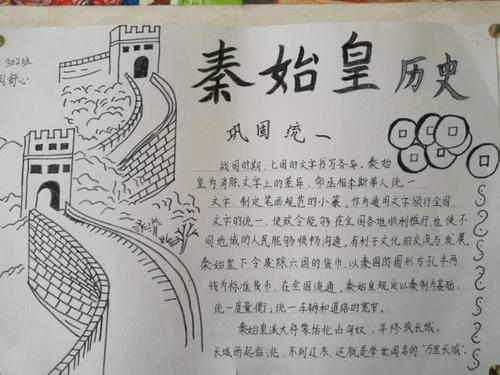 302班
舒心
秦始皇 历史
巩固统一
战国时期、七国的文字书写各异、秦始
皇为消除文字上的差异、命丞相李斯等人统一
文字、制定笔画规范的小篆、作为通用文字颁行全国、
文字的统一、使政令能够在全国各地顺利推行、也使不
同地域的人民能够顺畅沟通、有利于文化的交流与发展、
秦始皇下令废除六国的货币、以秦国的圆形方孔半两
钱为标准货币、在全国流通、秦始皇规定以秦制为基础、
统一度量衡;统一车辆和道路的宽窄。
秦始皇派大将蒙恬北击匈奴、并修筑长城、
长城西起临洮、东到辽东、这就是举世闻名的"万里长城"。